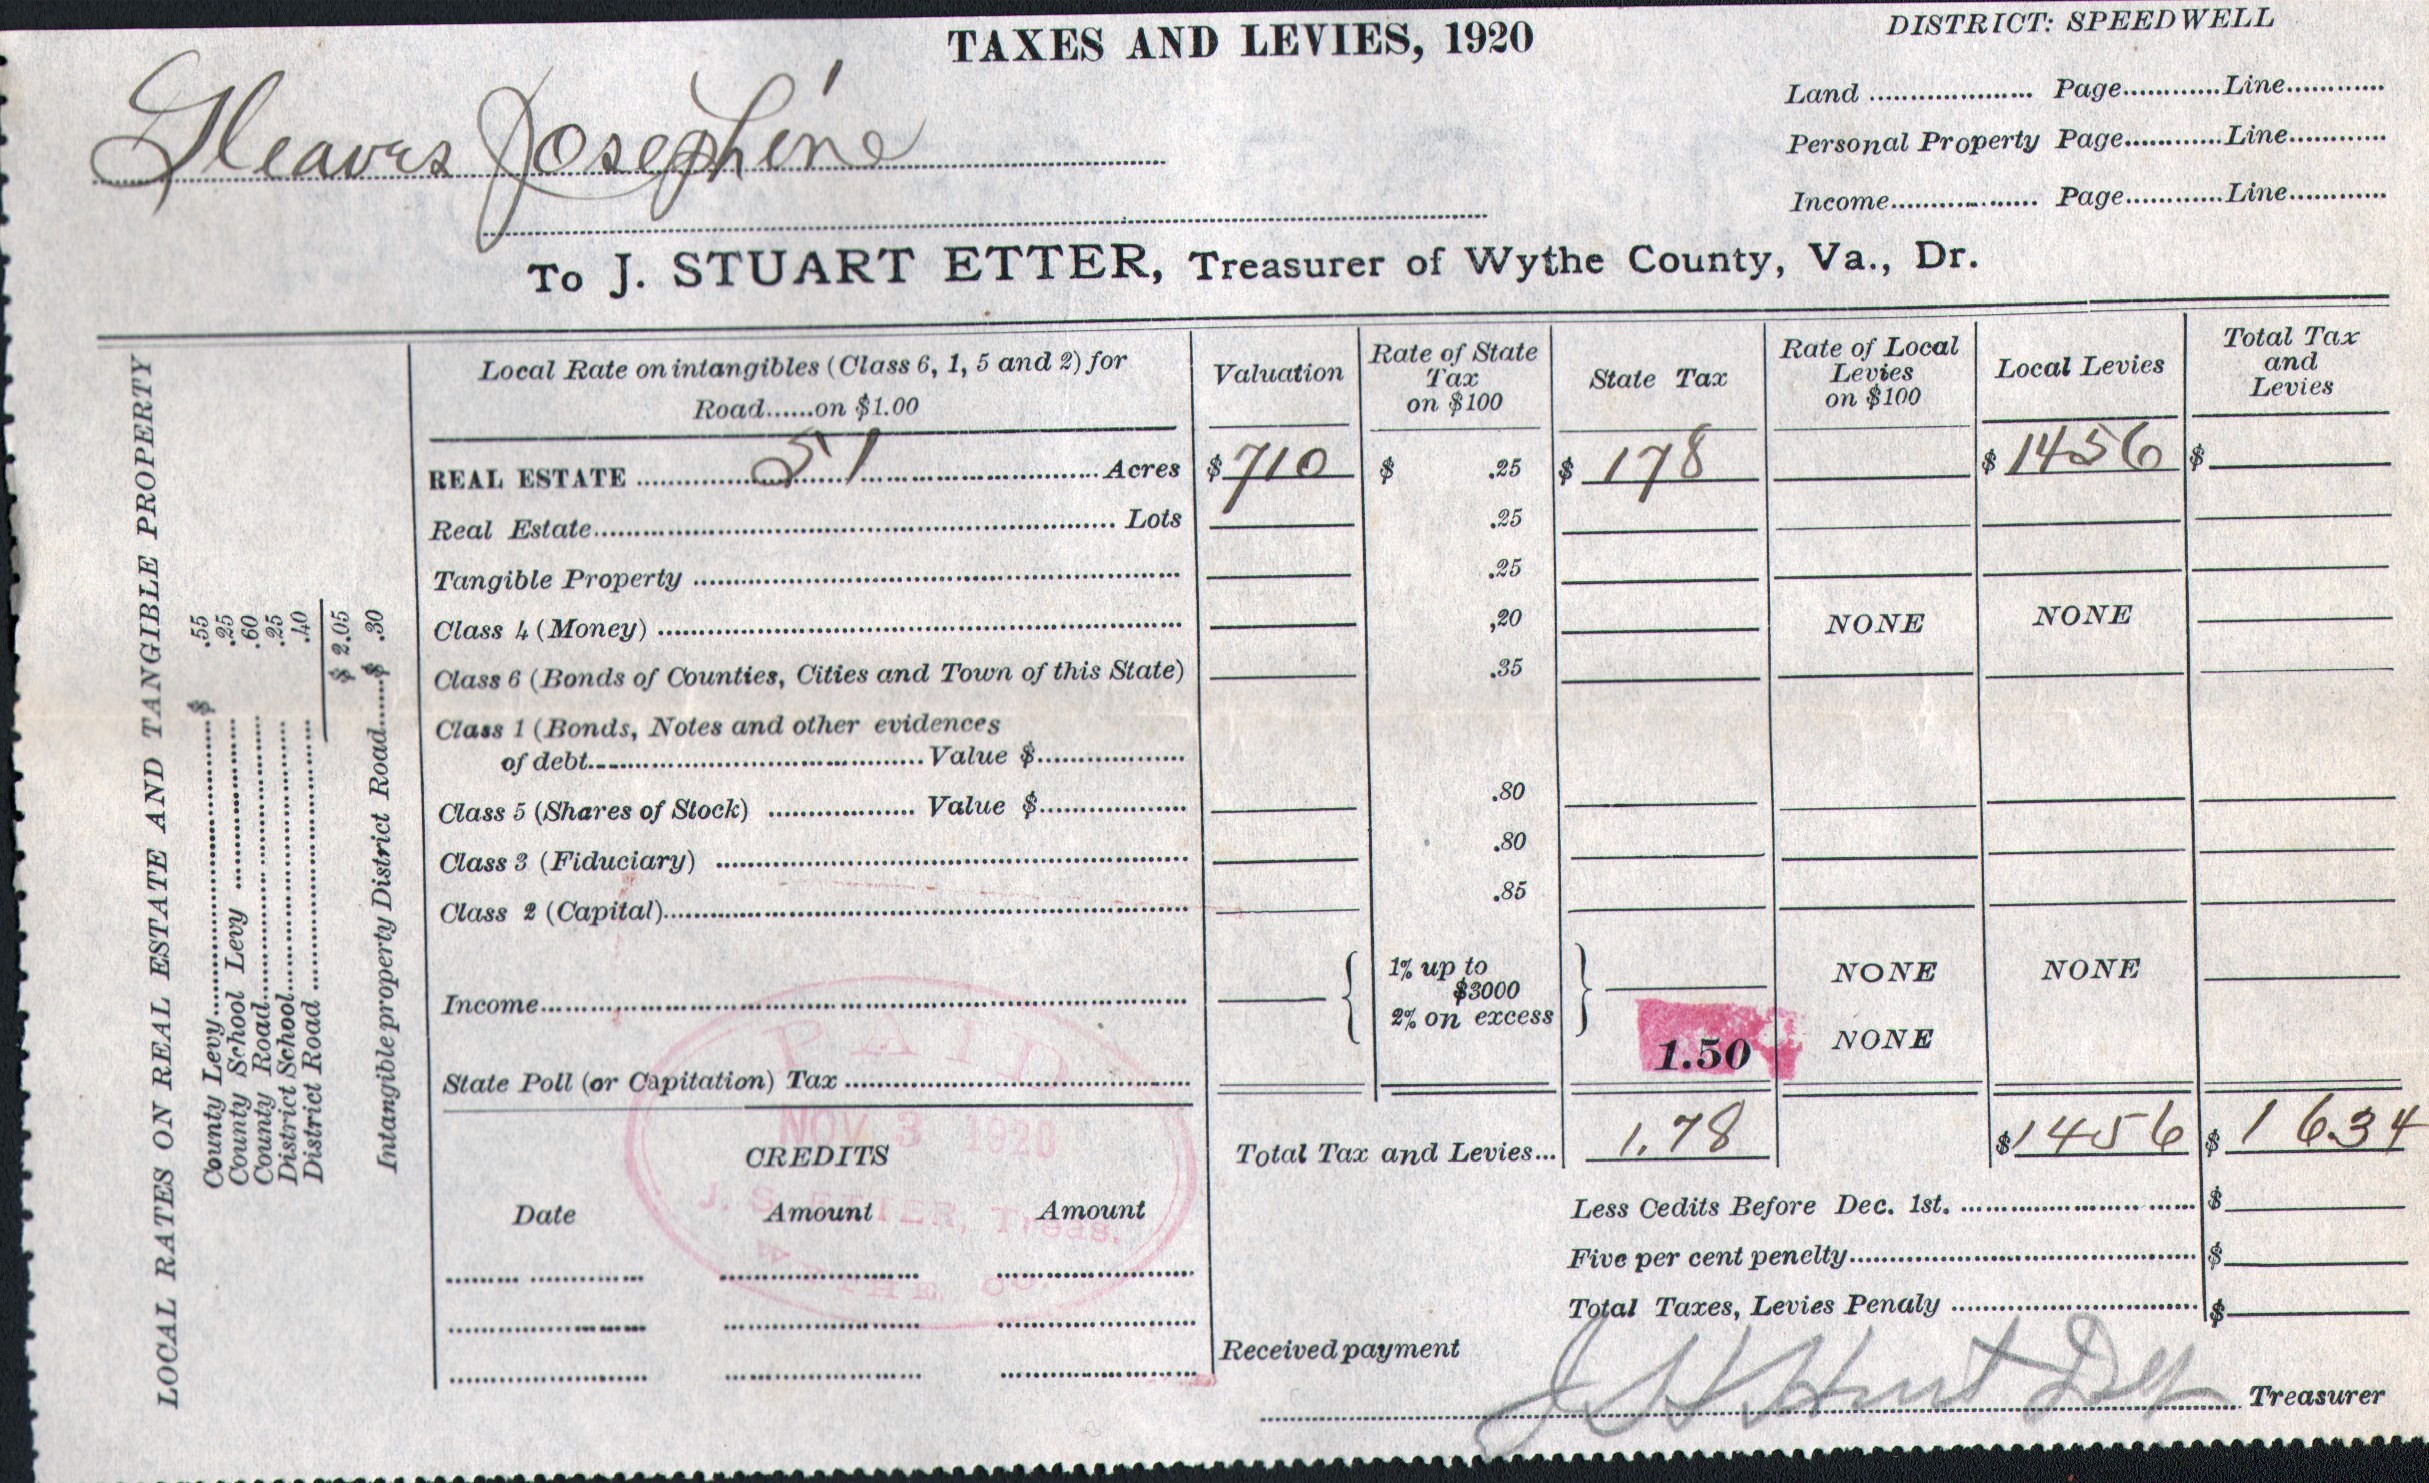 TAXES AND LEVIES, 1920
DISTRICT: SPEEDWELL
Gleaves Josephine
Land .................... Page............Line............
Personal Property Page............Line............
Income.................. Page............Line............
To J. STUART ETTER, Treasurer of Wythe County, Va., Dr.
LOCAL RATES ON REAL ESTATE AND TANGIBLE PROPERTY
County Levy............ $ .55
County School Levy ............ .25
County Road............ .60
District School............ .25
District Road ............ .40
$ 2.05
Intangible property District Road......$ .30
Local Rate on intangibles (Class 6, 1, 5 and 2) for
Road......on $1.00
Valuation
Rate of State Tax on $100
State Tax
Rate of Local Levies on $100
Local Levies
Total Tax and Levies
REAL ESTATE ............ 51 ............ Acres $ 710 $ .25 $ 178 $ 1456 $
Real Estate............ Lots .25
Tangible Property ............ .25
Class 4 (Money) ............ ,20 NONE NONE
Class 6 (Bonds of Counties, Cities and Town of this State) .35
Class 1 (Bonds, Notes and other evidences
of debt............ Value $............
.80
Class 5 (Shares of Stock) ............ Value $............
.80
Class 3 (Fiduciary) ............
.85
Class 2 (Capital)............
Income............ 1% up to $3000 2% on excess NONE NONE
State Poll (or Capitation) Tax ............ 1.50 NONE
PAID
NOV 3 1920
J. S. ETTER, Treas.
WYTHE CO
CREDITS
Date Amount Amount
Total Tax and Levies... 1.78 $ 1456 $ 1634
Less Cedits Before Dec. 1st. ............ $
Five per cent penelty............ $
Total Taxes, Levies Penaly ............ $
Received payment
J H Hurt Dep Treasurer